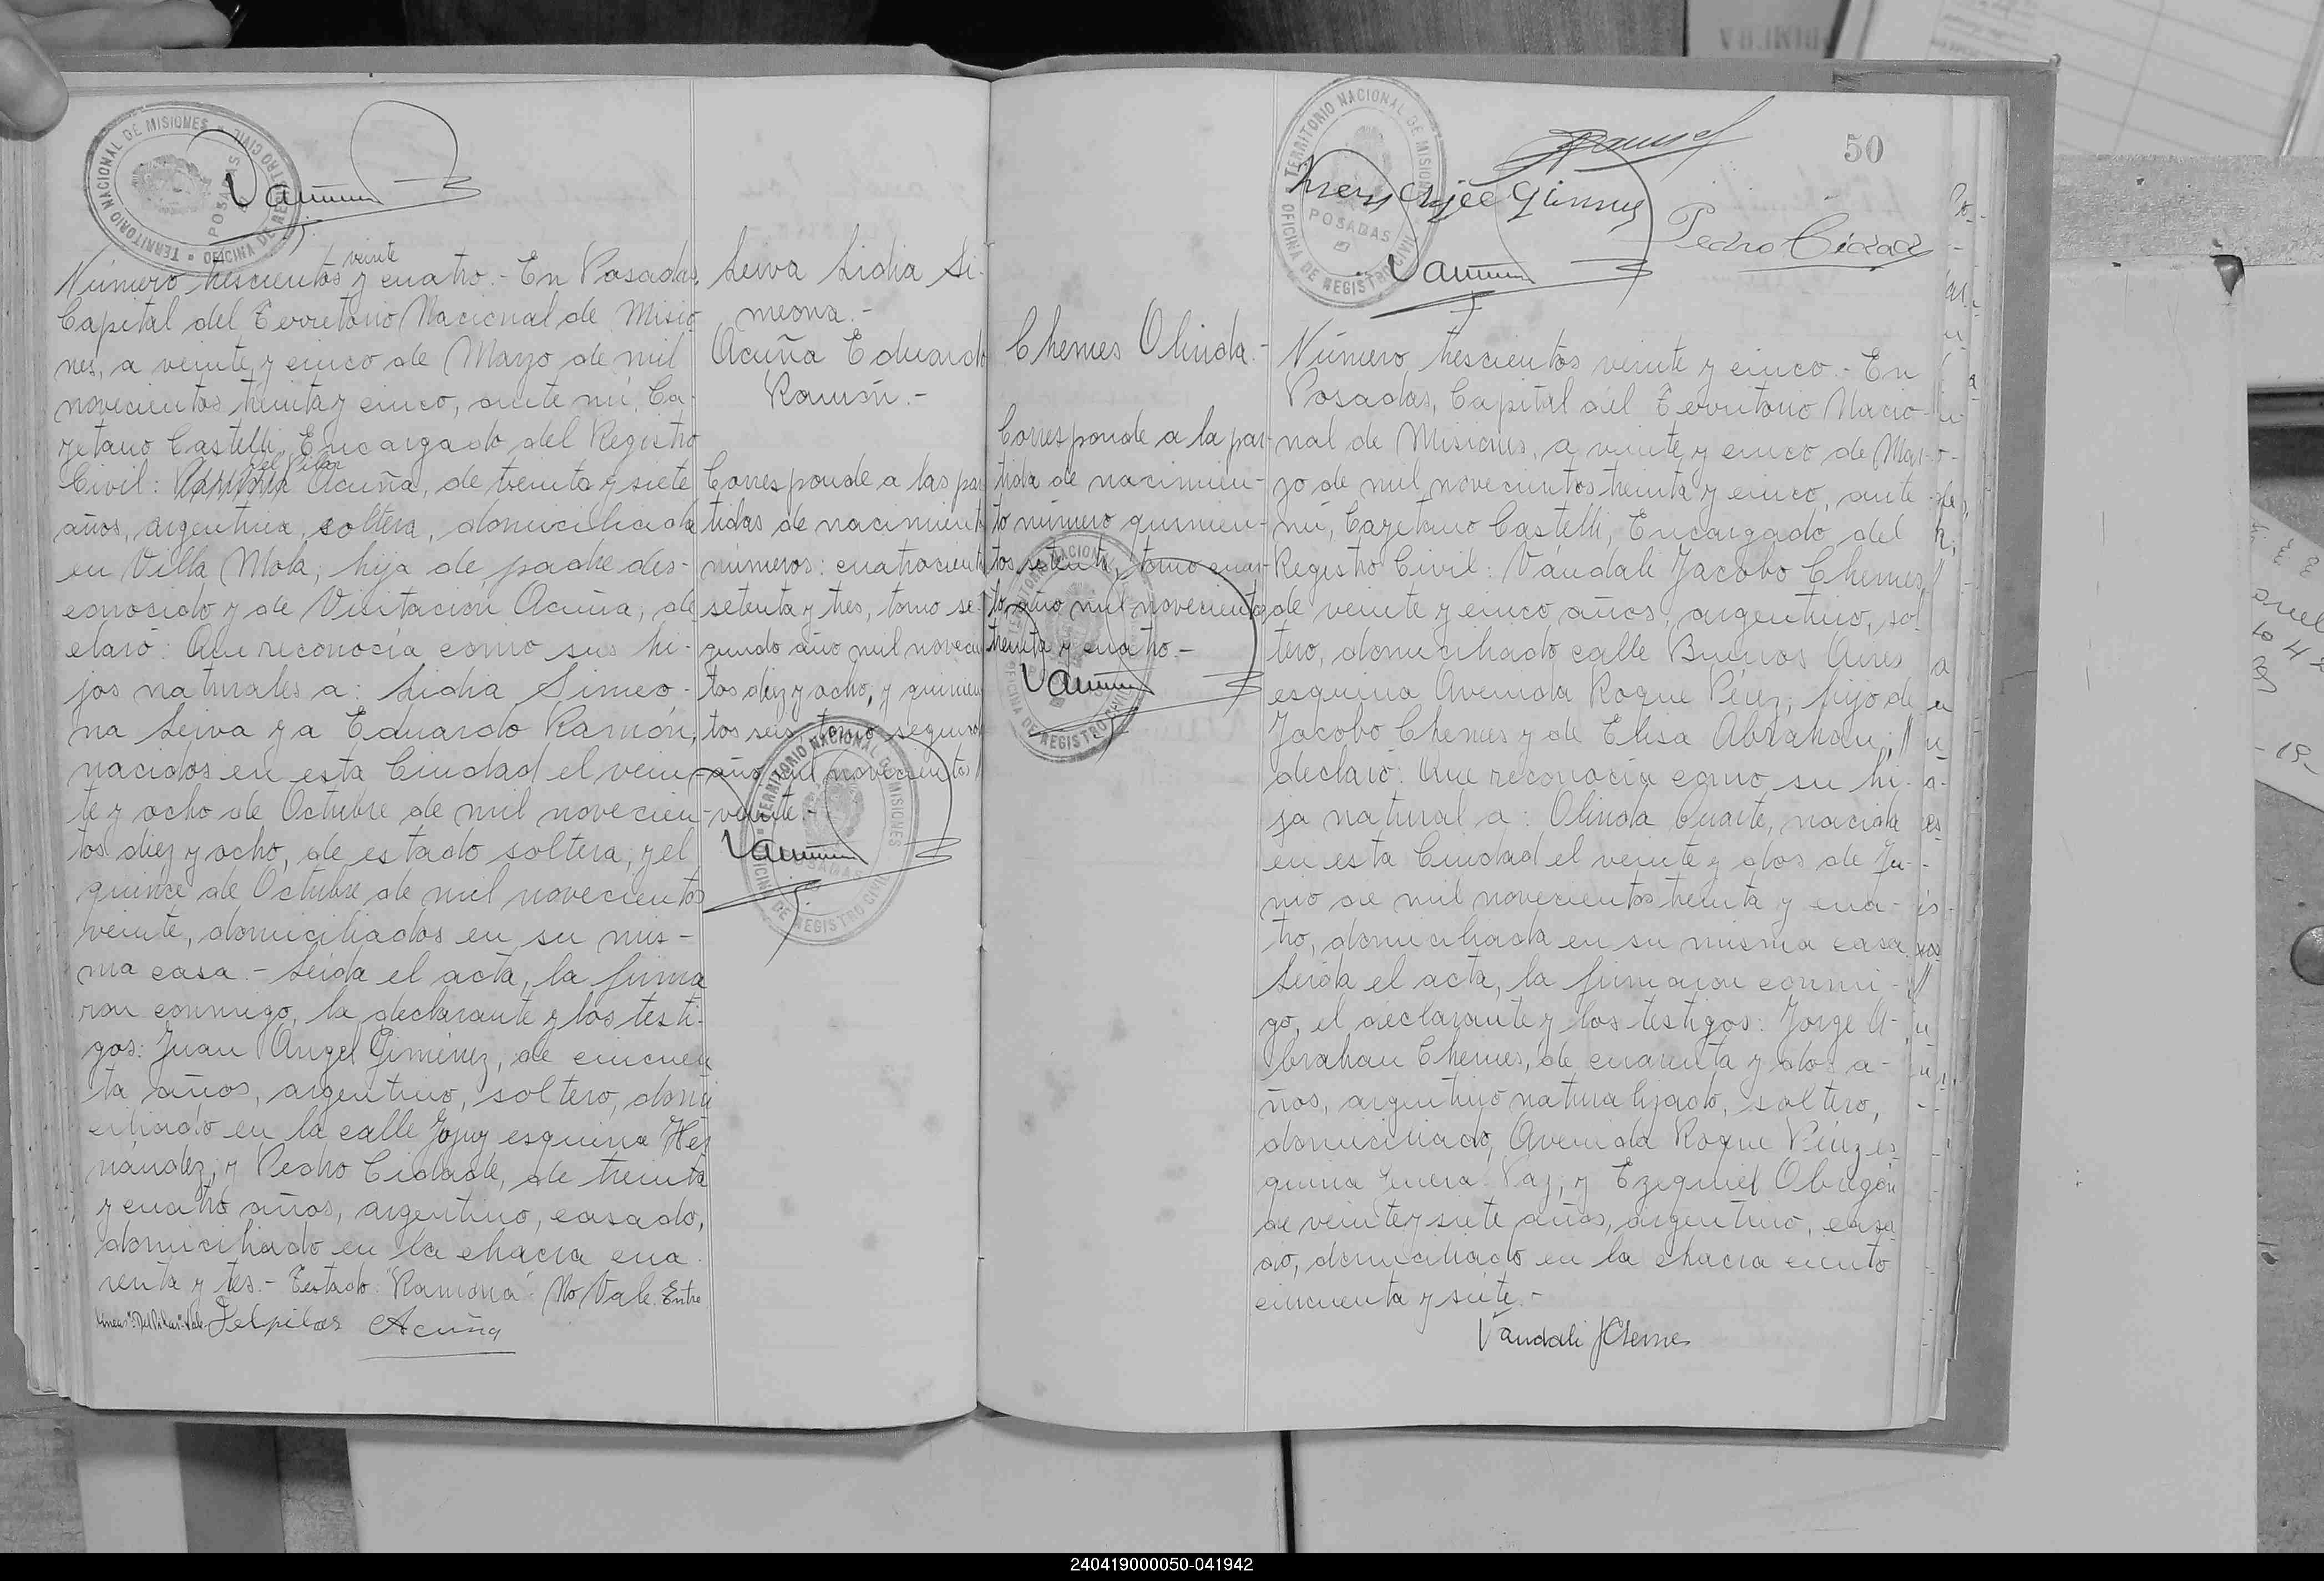 TERRITORIO NACIONAL DE MISIONES
OFICINA DE REGISTRO CIVIL
POSADAS
veinte
Número trescientos y cuatro.- En Posadas,
Capital del Territorio Nacional de Misio-
nes, a veinte y cinco de Marzo de mil
novecientos treinta y cinco, ante mí, Ca-
yetano Castelli, Encargado del Registro
del Pilar
Civil: Ramona Acuña, de treinta y siete
años, argentina, soltera, domiciliada
en Villa Mola, hija de padre des-
conocido y de Visitación Acuña; de
claró: Que reconocía como sus hi-
jos naturales a: Lidia Simeo-
na Leiva y a Eduardo Ramón,
nacidos en esta Ciudad el vein-
te y ocho de Octubre de mil novecien-
tos diez y ocho, de estado soltera; y el
quince de Octubre de mil novecientos
veinte, domiciliados en su mis-
ma casa.- Leída el acta, la firma
ron conmigo, la declarante y los testi-
gos: Juan Angel Giménez, de cincuen
ta años, argentino, soltero, domi
ciliado en la calle Jujuy esquina Her
nández; y Pedro Cidade, de treinta
y cuatro años, argentino, casado,
domiciliado en la chacra cua
renta y tres.- Testado: "Ramona". No Vale. Entre
líneas: "del Pilar": Vale.
Delpilar Acuña
Leiva Lidia Si-
meona.-
Acuña Eduardo
Ramón.-
Corresponde a las par
tidas de nacimiento
números: cuatrocientos
setenta y tres, tomo se-
gundo año mil novecien
tos diez y ocho, y quinien
tos seis, tomo segundo
año mil novecientos
veinte.-
TERRITORIO NACIONAL DE MISIONES
OFICINA DE REGISTRO CIVIL
POSADAS
Chemes Olinda.-
Corresponde a la par-
tida de nacimien-
to número quinien-
tos setenta, tomo cuar-
to, año mil novecientos
treinta y cuatro.-
TERRITORIO NACIONAL DE MISIONES
OFICINA DE REGISTRO CIVIL
TERRITORIO NACIONAL DE MISIONES
OFICINA DE REGISTRO CIVIL
POSADAS
50
Pedro Cidade
Número trescientos veinte y cinco.- En
Posadas, Capital del Territorio Nacio-
nal de Misiones, a veinte y cinco de Mar-
zo de mil novecientos treinta y cinco, ante
mí, Cayetano Castelli, Encargado del
Registro Civil: Vándali Jacobo Chemes,
de veinte y cinco años, argentino, sol
tero, domiciliado calle Buenos Aires
esquina Avenida Roque Pérez; hijo de
Jacobo Chemes y de Elisa Abrahan;
declaró: Que reconocía como su hi-
ja natural a: Olinda Duarte, nacida
en esta Ciudad el veinte y dos de Ju-
nio de mil novecientos treinta y cua-
tro, domiciliada en su misma casa.
Leída el acta, la firmaron conmi-
go, el declarante y los testigos: Jorge A-
brahan Chemes, de cuarenta y dos a-
ños, argentino naturalizado, soltero,
domiciliado Avenida Roque Pérez es-
quina General Paz; y Ezequiel Obregón
de veinte y siete años, argentino, casa
do, domiciliado en la chacra ciento
cincuenta y siete.-
Vandali JChemes
240419000050-041942